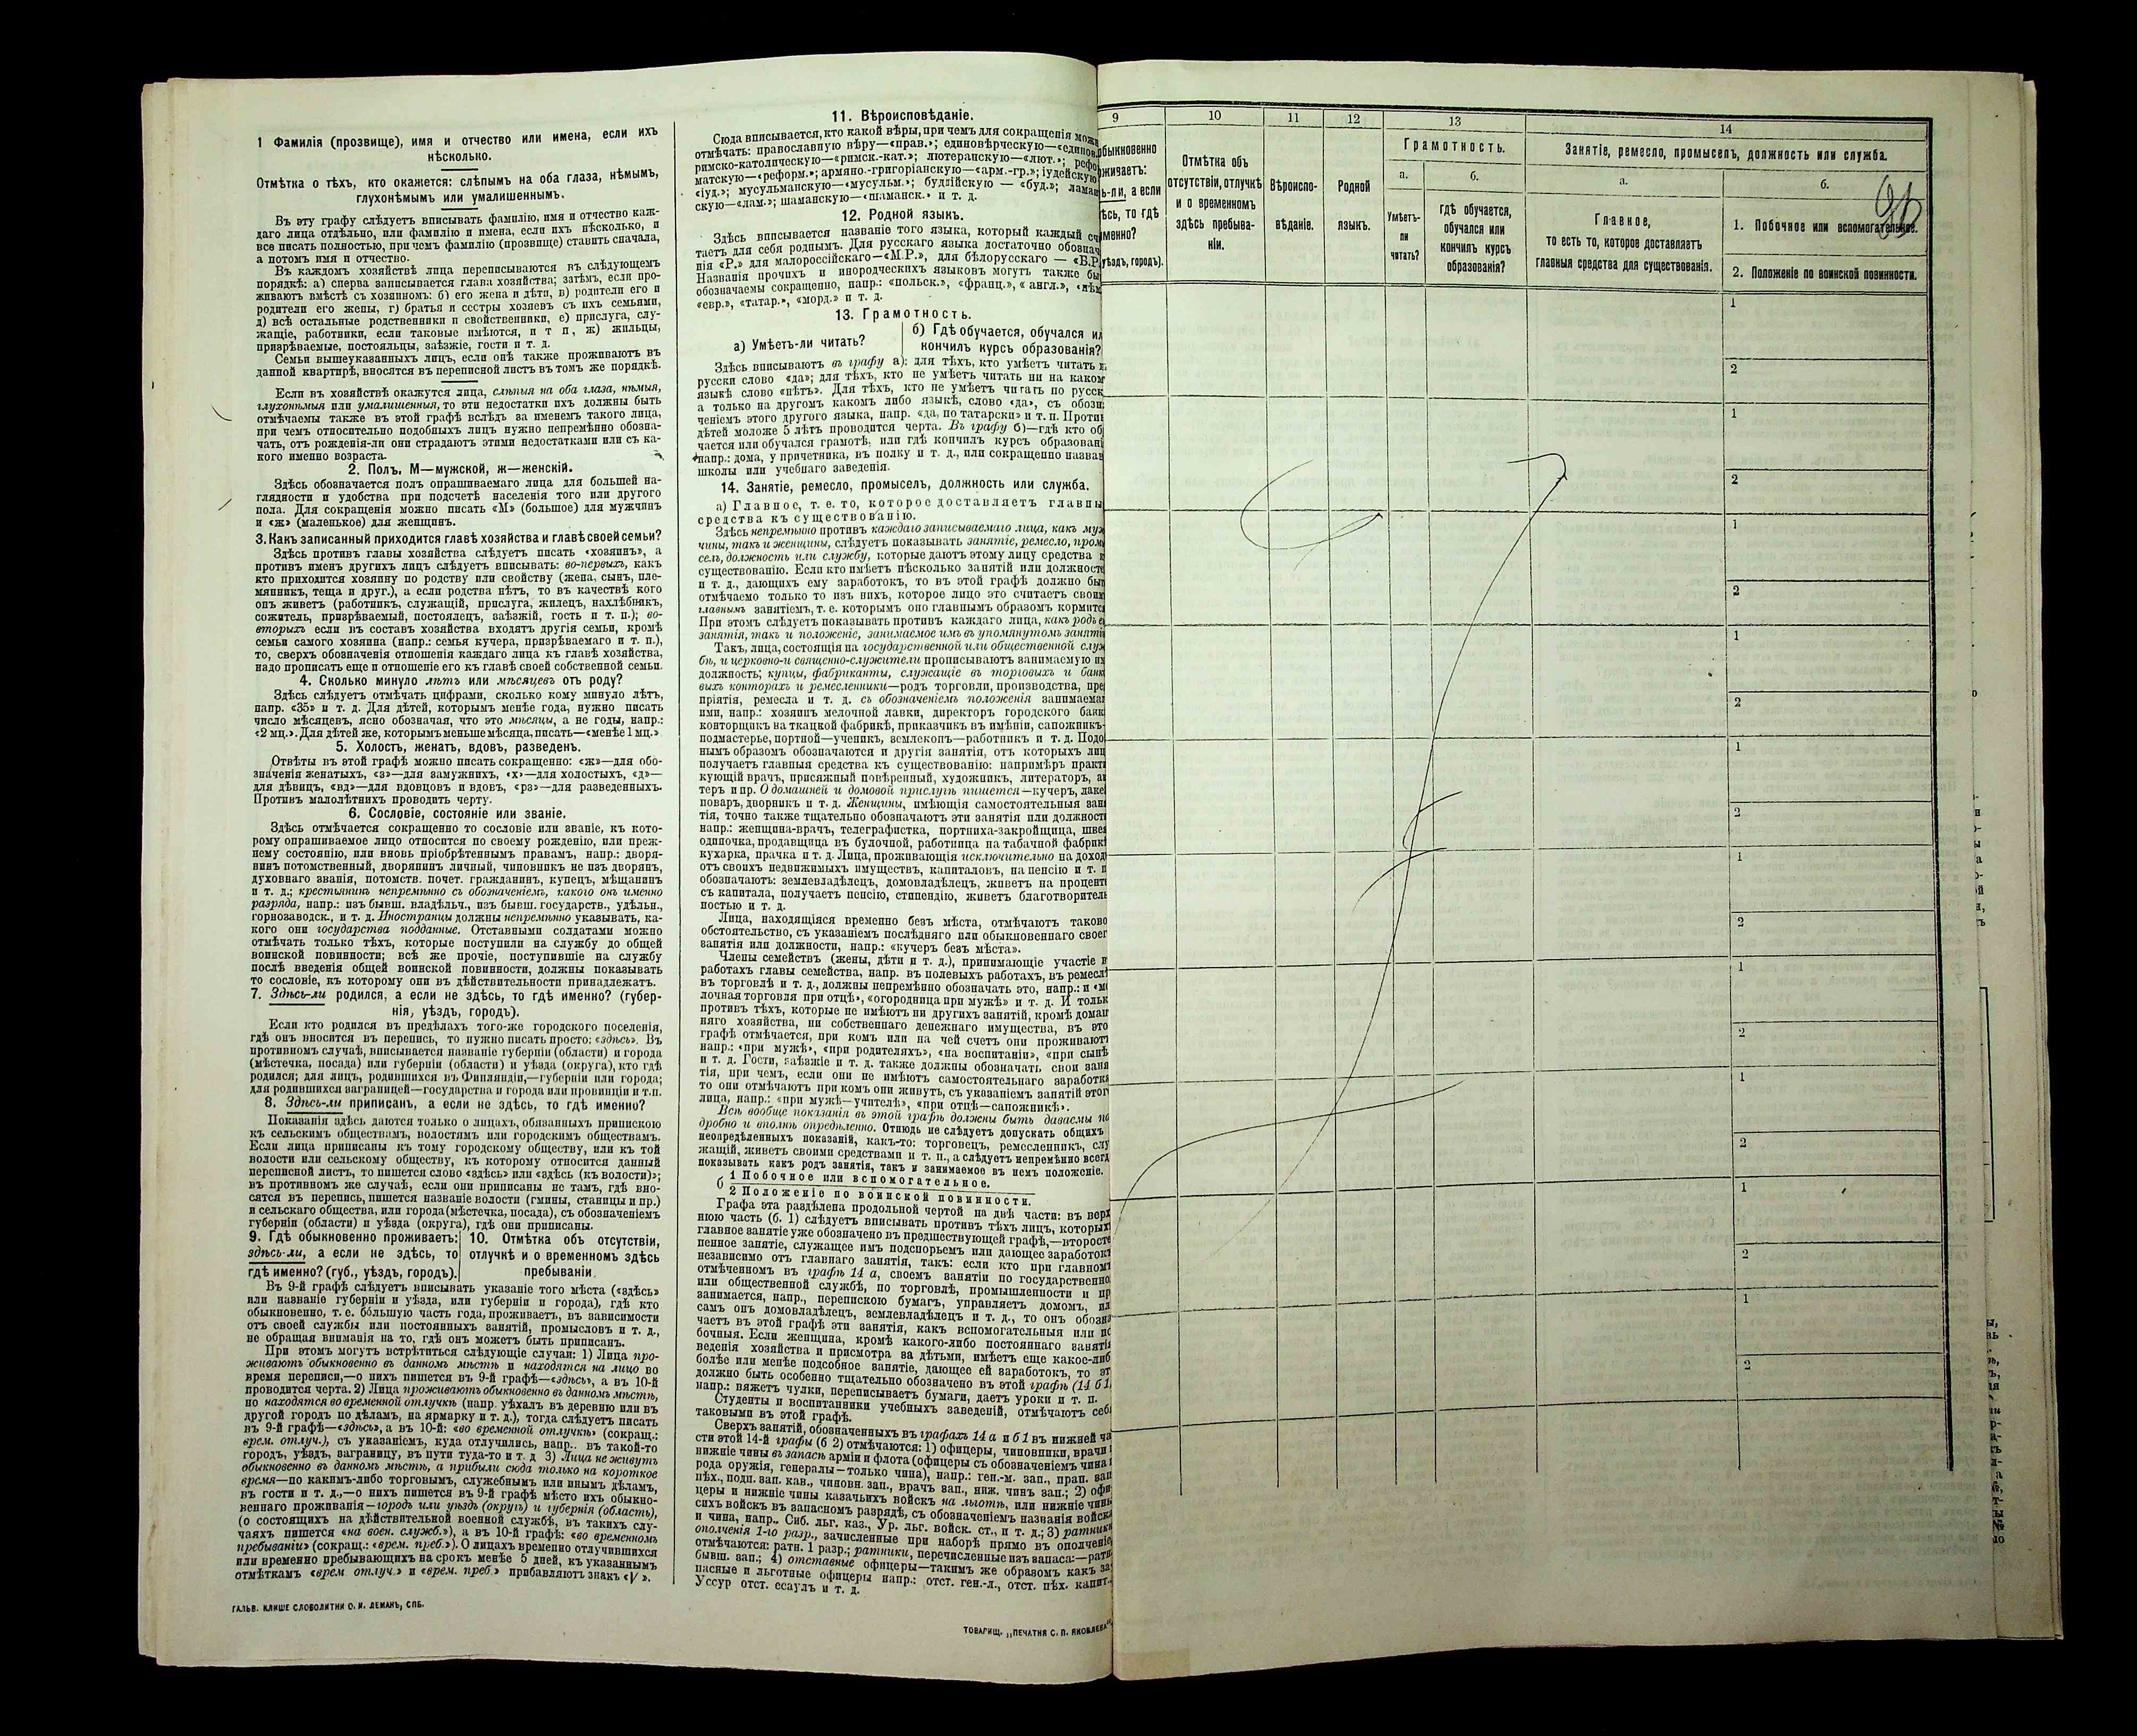 1 Фамилія (прозвище), имя и отчество или имена, если ихъ
нѣсколько.
Отмѣтка о тѣхъ, кто окажется: слѣпымъ на оба глаза, нѣмымъ,
глухонѣмымъ или умалишеннымъ.
Въ эту графу слѣдуетъ вписывать фамилію, имя и отчество каж-
даго лица отдѣльно, или фамилію и имена, если ихъ нѣсколько, и
все писать полностью, при чемъ фамилію (прозвище) ставить сначала,
а потомъ имя и отчество.
Въ каждомъ хозяйствѣ лица переписываются въ слѣдующемъ
порядкѣ: а) сперва записывается глава хозяйства; затѣмъ, если про-
живаютъ вмѣстѣ съ хозяиномъ: б) его жена и дѣти, в) родители его и
родители его жены, г) братья и сестры хозяевъ съ ихъ семьями,
д) всѣ остальные родственники и свойственники, е) прислуга, слу-
жащіе, работники, если таковые имѣются, и т п, ж) жильцы,
призрѣваемые, постояльцы, заѣзжіе, гости и т. д.
Семьи вышеуказанныхъ лицъ, если онѣ также проживаютъ въ
данной квартирѣ, вносятся въ переписной листъ въ томъ же порядкѣ.
Если въ хозяйствѣ окажутся лица, слѣпыя на оба глаза, нѣмыя,
глухонѣмыя или умалишенныя, то эти недостатки ихъ должны быть
отмѣчаемы также въ этой графѣ вслѣдъ за именемъ такого лица,
при чемъ относительно подобныхъ лицъ нужно непремѣнно обозна-
чать, отъ рожденія-ли они страдаютъ этими недостатками или съ ка-
кого именно возраста.
2. Полъ. М—мужской, ж—женскій.
Здѣсь обозначается полъ опрашиваемаго лица для большей на-
глядности и удобства при подсчетѣ населенія того или другого
пола. Для сокращенія можно писать «М» (большое) для мужчинъ
и «ж» (маленькое) для женщинъ.
3. Какъ записанный приходится главѣ хозяйства и главѣ своей семьи?
Здѣсь противъ главы хозяйства слѣдуетъ писать «хозяинъ», а
противъ именъ другихъ лицъ слѣдуетъ вписывать: во-первыхъ, какъ
кто приходится хозяину по родству или свойству (жена, сынъ, пле-
мянникъ, теща и друг.), а если родства нѣтъ, то въ качествѣ кого
онъ живетъ (работникъ, служащій, прислуга, жилецъ, нахлѣбникъ,
сожитель, призрѣваемый, постоялецъ, заѣзжій, гость и т. п.); во-
вторыхъ если въ составъ хозяйства входятъ другія семьи, кромѣ
семьи самого хозяина (напр.: семья кучера, призрѣваемаго и т. п.),
то, сверхъ обозначенія отношенія каждаго лица къ главѣ хозяйства,
надо прописать еще и отношеніе его къ главѣ своей собственной семьи.
4. Сколько минуло лѣтъ или мѣсяцевъ отъ роду?
Здѣсь слѣдуетъ отмѣчать цифрами, сколько кому минуло лѣтъ,
напр. «35» и т. д. Для дѣтей, которымъ менѣе года, нужно писать
число мѣсяцевъ, ясно обозначая, что это мѣсяцы, а не годы, напр.:
«2 мц.». Для дѣтей же, которымъ меньше мѣсяца, писать—«менѣе 1 мц.»
5. Холостъ, женатъ, вдовъ, разведенъ.
Отвѣты въ этой графѣ можно писать сокращенно: «ж»—для обо-
значенія женатыхъ, «з»—для замужнихъ, «х»—для холостыхъ, «д»—
для дѣвицъ, «вд»—для вдовцовъ и вдовъ, «рз»—для разведенныхъ.
Противъ малолѣтнихъ проводить черту.
6. Сословіе, состояніе или званіе.
Здѣсь отмѣчается сокращенно то сословіе или званіе, къ кото-
рому опрашиваемое лицо относится по своему рожденію, или преж-
нему состоянію, или вновь пріобрѣтеннымъ правамъ, напр.: дворя-
нинъ потомственный, дворянинъ личный, чиновникъ не изъ дворянъ,
духовнаго званія, потомств. почет. гражданинъ, купецъ, мѣщанинъ
и т. д.; крестьянинъ непремѣнно съ обозначеніемъ, какого онъ именно
разряда, напр.: изъ бывш. владѣльч., изъ бывш. государств., удѣльн.,
горнозаводск., и т. д. Иностранцы должны непремѣнно указывать, ка-
кого они государства подданные. Отставными солдатами можно
отмѣчать только тѣхъ, которые поступили на службу до общей
воинской повинности; всѣ же прочіе, поступившіе на службу
послѣ введенія общей воинской повинности, должны показывать
то сословіе, къ которому они въ дѣйствительности принадлежатъ.
7. Здѣсь-ли родился, а если не здѣсь, то гдѣ именно? (губер-
нія, уѣздъ, городъ).
Если кто родился въ предѣлахъ того-же городского поселенія,
гдѣ онъ вносится въ перепись, то нужно писать просто: «здѣсь». Въ
противномъ случаѣ, вписывается названіе губерніи (области) и города
(мѣстечка, посада) или губерніи (области) и уѣзда (округа), кто гдѣ
родился; для лицъ, родившихся въ Финляндіи,—губерніи или города;
для родившихся заграницей—государства и города или провинціи и т.п.
8. Здѣсь-ли приписанъ, а если не здѣсь, то гдѣ именно?
Показанія здѣсь даются только о лицахъ, обязанныхъ припискою
къ сельскимъ обществамъ, волостямъ или городскимъ обществамъ.
Если лица приписаны къ тому городскому обществу, или къ той
волости или сельскому обществу, къ которому относится данный
переписной листъ, то пишется слово «здѣсь» или «здѣсь (къ волости)»;
въ противномъ же случаѣ, если они приписаны не тамъ, гдѣ вно-
сятся въ перепись, пишется названіе волости (гмины, станицы и пр.)
и сельскаго общества, или города (мѣстечка, посада), съ обозначеніемъ
губерніи (области) и уѣзда (округа), гдѣ они приписаны.
9. Гдѣ обыкновенно проживаетъ:
здѣсь-ли, а если не здѣсь, то
гдѣ именно? (губ., уѣздъ, городъ).
10. Отмѣтка объ отсутствіи,
отлучкѣ и о временномъ здѣсь
пребываніи.
Въ 9-й графѣ слѣдуетъ вписывать указаніе того мѣста («здѣсь»
или названіе губерніи и уѣзда, или губерніи и города), гдѣ кто
обыкновенно, т. е. бо́льшую часть года, проживаетъ, въ зависимости
отъ своей службы или постоянныхъ занятій, промысловъ и т. д.,
не обращая вниманія на то, гдѣ онъ можетъ быть приписанъ.
При этомъ могутъ встрѣтиться слѣдующіе случаи: 1) Лица про-
живаютъ обыкновенно въ данномъ мѣстѣ и находятся на лицо во
время переписи,—о нихъ пишется въ 9-й графѣ—«здѣсь», а въ 10-й
проводится черта. 2) Лица проживаютъ обыкновенно въ данномъ мѣстѣ,
но находятся во временной отлучкѣ (напр. уѣхалъ въ деревню или въ
другой городъ по дѣламъ, на ярмарку и т. д.), тогда слѣдуетъ писать
въ 9-й графѣ—«здѣсь», а въ 10-й: «во временной отлучкѣ» (сокращ.:
врем. отлуч.), съ указаніемъ, куда отлучились, напр.. въ такой-то
городъ, уѣздъ, заграницу, въ пути туда-то и т. д 3) Лица не живутъ
обыкновенно въ данномъ мѣстѣ, а прибыли сюда только на короткое
время—по какимъ-либо торговымъ, служебнымъ или инымъ дѣламъ,
въ гости и т. д.,—о нихъ пишется въ 9-й графѣ мѣсто ихъ обыкно-
веннаго проживанія—городъ или уѣздъ (округъ) и губернія (область),
(о состоящихъ на дѣйствительной военной службѣ, въ такихъ слу-
чаяхъ пишется «на воен. служб.»), а въ 10-й графѣ: «во временномъ
пребываніи» (сокращ.: «врем. преб.»). О лицахъ временно отлучившихся
или временно пребывающихъ на срокъ менѣе 5 дней, къ указаннымъ
отмѣткамъ «врем отлуч.» и «врем. преб.» прибавляютъ знакъ «V».
ГАЛЬВ. КЛИШЕ СЛОВОЛИТНИ О. И. ЛЕМАНЪ, СПБ.
11. Вѣроисповѣданіе.
Сюда вписывается, кто какой вѣры, при чемъ для сокращенія можн
отмѣчать: православную вѣру—«прав.»; единовѣрческую—«единов.
римско-католическую—«римск.-кат.»; лютеранскую—«лют.»; рефо
матскую—«реформ.»; армяно.-григоріанскую—«арм.-гр.»; іудейскую
«іуд.»; мусульманскую—«мусульм.»; буддійскую — «буд.»; ламаи
скую—«лам.»; шаманскую—«шаманск.» и т. д.
12. Родной языкъ.
Здѣсь вписывается названіе того языка, который каждый сч
таетъ для себя роднымъ. Для русскаго языка достаточно обознач
нія «Р.» для малороссійскаго—«М.Р.», для бѣлорусскаго — «Б.Р.
Названія прочихъ и инородческихъ языковъ могутъ также бы
обозначаемы сокращенно, напр.: «польск.», «франц.», «англ.», «нѣм
«евр.», «татар.», «морд.» и т. д.
13. Грамотность.
а) Умѣетъ-ли читать?
б) Гдѣ обучается, обучался ил
кончилъ курсъ образованія?
Здѣсь вписываютъ въ графу а): для тѣхъ, кто умѣетъ читать п
русски слово «да»; для тѣхъ, кто не умѣетъ читать ни на каком
языкѣ слово «нѣтъ». Для тѣхъ, кто не умѣетъ читать по русск
а только на другомъ какомъ либо языкѣ, слово «да», съ обозн
ченіемъ этого другого языка, напр. «да, по татарски» и т. п. Проти
дѣтей моложе 5 лѣтъ проводится черта. Въ графу б)—гдѣ кто об
чается или обучался грамотѣ, или гдѣ кончилъ курсъ образовані
напр.: дома, у причетника, въ полку и т. д., или сокращенно назван
школы или учебнаго заведенія.
14. Занятіе, ремесло, промыселъ, должность или служба.
а) Главное, т. е. то, которое доставляетъ главны
средства къ существованію.
Здѣсь непремѣнно противъ каждаго записываемаго лица, какъ муж
чины, такъ и женщины, слѣдуетъ показывать занятіе, ремесло, пром
селъ, должность или службу, которые даютъ этому лицу средства к
существованію. Если кто имѣетъ нѣсколько занятій или должносте
и т. д., дающихъ ему заработокъ, то въ этой графѣ должно быт
отмѣчаемо только то изъ нихъ, которое лицо это считаетъ своим
главнымъ занятіемъ, т. е. которымъ оно главнымъ образомъ кормитс
При этомъ слѣдуетъ показывать противъ каждаго лица, какъ родъ е
занятія, такъ и положеніе, занимаемое имъ въ упомянутомъ заняті
Такъ, лица, состоящія на государственной или общественной служ
бѣ, и церковно-и священно-служители прописываютъ занимаемую им
должность; купцы, фабриканты, служащіе въ торговыхъ и банк
выхъ конторахъ и ремесленники—родъ торговли, производства, пре
пріятія, ремесла и т. д. съ обозначеніемъ положенія занимаемаг
ими, напр.: хозяинъ мелочной лавки, директоръ городского банк
конторщикъ на ткацкой фабрикѣ, приказчикъ въ имѣніи, сапожникъ-
подмастерье, портной—ученикъ, землекопъ—работникъ и т. д. Подо
нымъ образомъ обозначаются и другія занятія, отъ которыхъ лиц
получаетъ главныя средства къ существованію: напримѣръ практ
кующій врачъ, присяжный повѣренный, художникъ, литераторъ, а
теръ и пр. О домашней и домовой прислугѣ пишется—кучеръ, лаке
поваръ, дворникъ и т. д. Женщины, имѣющія самостоятельныя зан
тія, точно также тщательно обозначаютъ эти занятія или должност
напр.: женщина-врачъ, телеграфистка, портниха-закройщица, швея
одиночка, продавщица въ булочной, работница на табачной фабрик
кухарка, прачка и т. д. Лица, проживающія исключительно на доход
отъ своихъ недвижимыхъ имуществъ, капиталовъ, на пенсію и т. п
обозначаютъ: землевладѣлецъ, домовладѣлецъ, живетъ на процент
съ капитала, получаетъ пенсію, стипендію, живетъ благотворитель
ностью и т. д.
Лица, находящіяся временно безъ мѣста, отмѣчаютъ таково
обстоятельство, съ указаніемъ послѣдняго или обыкновеннаго своег
занятія или должности, напр.: «кучеръ безъ мѣста».
Члены семействъ (жены, дѣти и т. д.), принимающіе участіе в
работахъ главы семейства, напр. въ полевыхъ работахъ, въ ремесл
въ торговлѣ и т. д., должны непремѣнно обозначать это, напр.: и «м
лочная торговля при отцѣ», «огородница при мужѣ» и т. д. И тольк
противъ тѣхъ, которые не имѣютъ ни другихъ занятій, кромѣ домаш
няго хозяйства, ни собственнаго денежнаго имущества, въ это
графѣ отмѣчается, при комъ или на чей счетъ они проживаютъ
напр.: «при мужѣ», «при родителяхъ», «на воспитаніи», «при сынѣ
и т. д. Гости, заѣзжіе и т. д. также должны обозначать свои заня
тія, при чемъ, если они не имѣютъ самостоятельнаго заработка
то они отмѣчаютъ при комъ они живутъ, съ указаніемъ занятій этого
лица, напр.: «при мужѣ—учителѣ», «при отцѣ—сапожникѣ».
Всѣ вообще показанія въ этой графѣ должны быть даваемы по
дробно и вполнѣ опредѣленно. Отнюдь не слѣдуетъ допускать общихъ
неопредѣленныхъ показаній, какъ-то: торговецъ, ремесленникъ, слу
жащій, живетъ своими средствами и т. п., а слѣдуетъ непремѣнно всегд
показывать какъ родъ занятія, такъ и занимаемое въ немъ положеніе.
б 1 Побочное или вспомогательное.
2 Положеніе по воинской повинности.
Графа эта раздѣлена продольной чертой на двѣ части: въ верх
нюю часть (б. 1) слѣдуетъ вписывать противъ тѣхъ лицъ, которыхъ
главное занятіе уже обозначено въ предшествующей графѣ,—второсте
пенное занятіе, служащее имъ подспорьемъ или дающее заработокъ
независимо отъ главнаго занятія, такъ: если кто при главномъ
отмѣченномъ въ графѣ 14 а, своемъ занятіи по государственно
или общественной службѣ, по торговлѣ, промышленности и пр
занимается, напр., перепискою бумагъ, управляетъ домомъ, ил
самъ онъ домовладѣлецъ, землевладѣлецъ и т. д., то онъ обозна
чаетъ въ этой графѣ эти занятія, какъ вспомогательныя или по
бочныя. Если женщина, кромѣ какого-либо постояннаго занятія
веденія хозяйства и присмотра за дѣтьми, имѣетъ еще какое-либ
болѣе или менѣе подсобное занятіе, дающее ей заработокъ, то эт
должно быть особенно тщательно обозначено въ этой графѣ (14 б 1,
напр.: вяжетъ чулки, переписываетъ бумаги, даетъ уроки и т. п.
Студенты и воспитанники учебныхъ заведеній, отмѣчаютъ себя
таковыми въ этой графѣ.
Сверхъ занятій, обозначенныхъ въ графахъ 14 а и б 1 въ нижней ча
сти этой 14-й графы (б 2) отмѣчаются: 1) офицеры, чиновники, врачи и
нижніе чины въ запасѣ арміи и флота (офицеры съ обозначеніемъ чина и
рода оружія, генералы—только чина), напр.: ген.-м. зап., прап. зап
пѣх., подп. зап. кав., чиновн. зап., врачъ зап., ниж. чинъ зап.; 2) офи
церы и нижніе чины казачьихъ войскъ на льготѣ, или нижніе чины
сихъ войскъ въ запасномъ разрядѣ, съ обозначеніемъ названія войска
и чина, напр.. Сиб. льг. каз., Ур. льг. войск. ст., и т. д.; 3) ратники
ополченія 1-го разр., зачисленные при наборѣ прямо въ ополченіе
отмѣчаются: ратн. 1 разр.; ратники, перечисленные изъ запаса:—ратн.
бывш. зап.; 4) отставные офицеры—такимъ же образомъ какъ за
пасные и льготные офицеры напр.: отст. ген.-л., отст. пѣх. капит.,
Уссур отст. есаулъ и т. д.
ТОВАРИЩ. „ПЕЧАТНЯ С. П. ЯКОВЛЕВА“
9
обыкновенно
живаетъ:
ь-ли, а если
ѣсь, то гдѣ
менно?
уѣздъ, городъ).
10
Отмѣтка объ
отсутствіи, отлучкѣ
и о временномъ
здѣсь пребыва-
ніи.
11
Вѣроиспо-
вѣданіе.
12
Родной
языкъ.
13
Грамотность.
а.
Умѣетъ-
ли
читать?
б.
гдѣ обучается,
обучался или
кончилъ курсъ
образованія?
14
Занятіе, ремесло, промыселъ, должность или служба.
а.
Главное,
то есть то, которое доставляетъ
главныя средства для существованія.
б.
1. Побочное или вспомогательное.
2. Положеніе по воинской повинности.
1
2
1
2
1
2
1
2
1
2
1
2
1
2
1
2
1
2
1
2